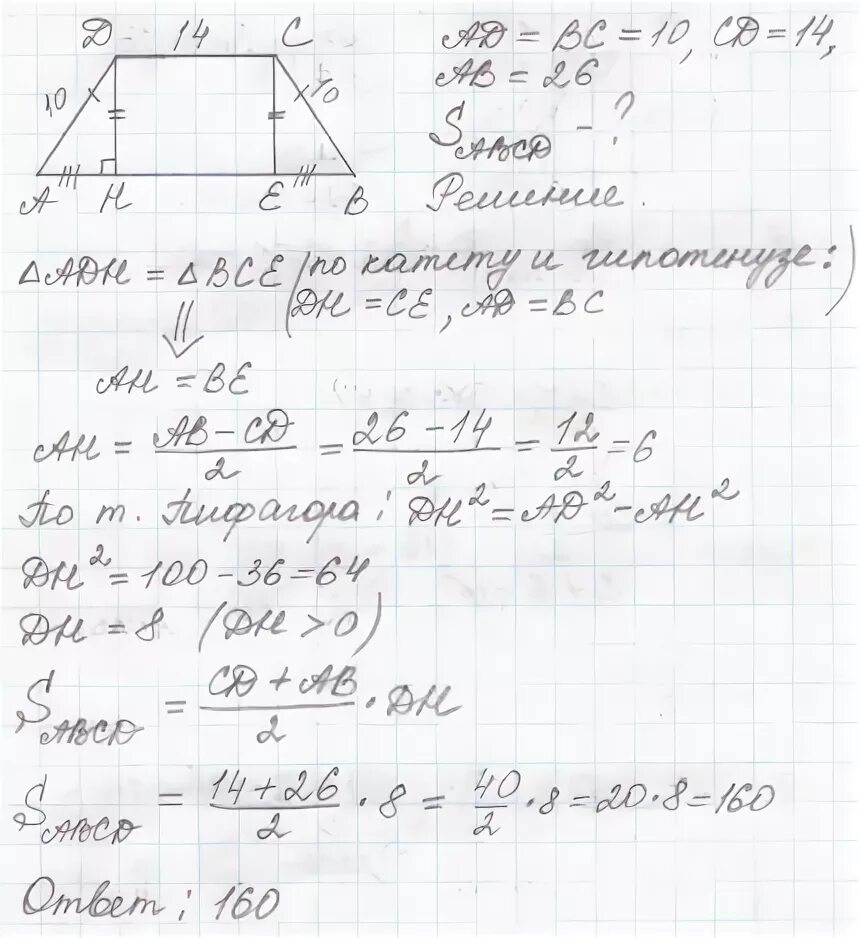 D 14 C
10 10
A H E B
AD = BC = 10, CD = 14,
AB = 26
S_ABCD - ?
Решение.
△ADH = △BCE (по катету и гипотенузе:
DH = CE, AD = BC)
⇓
AH = BE
AH = (AB - CD)/2 = (26 - 14)/2 = 12/2 = 6
По т. Пифагора: DH² = AD² - AH²
DH² = 100 - 36 = 64
DH = 8 (DH > 0)
S_ABCD = (CD + AB)/2 · DH
S_ABCD = (14 + 26)/2 · 8 = 40/2 · 8 = 20 · 8 = 160
Ответ: 160